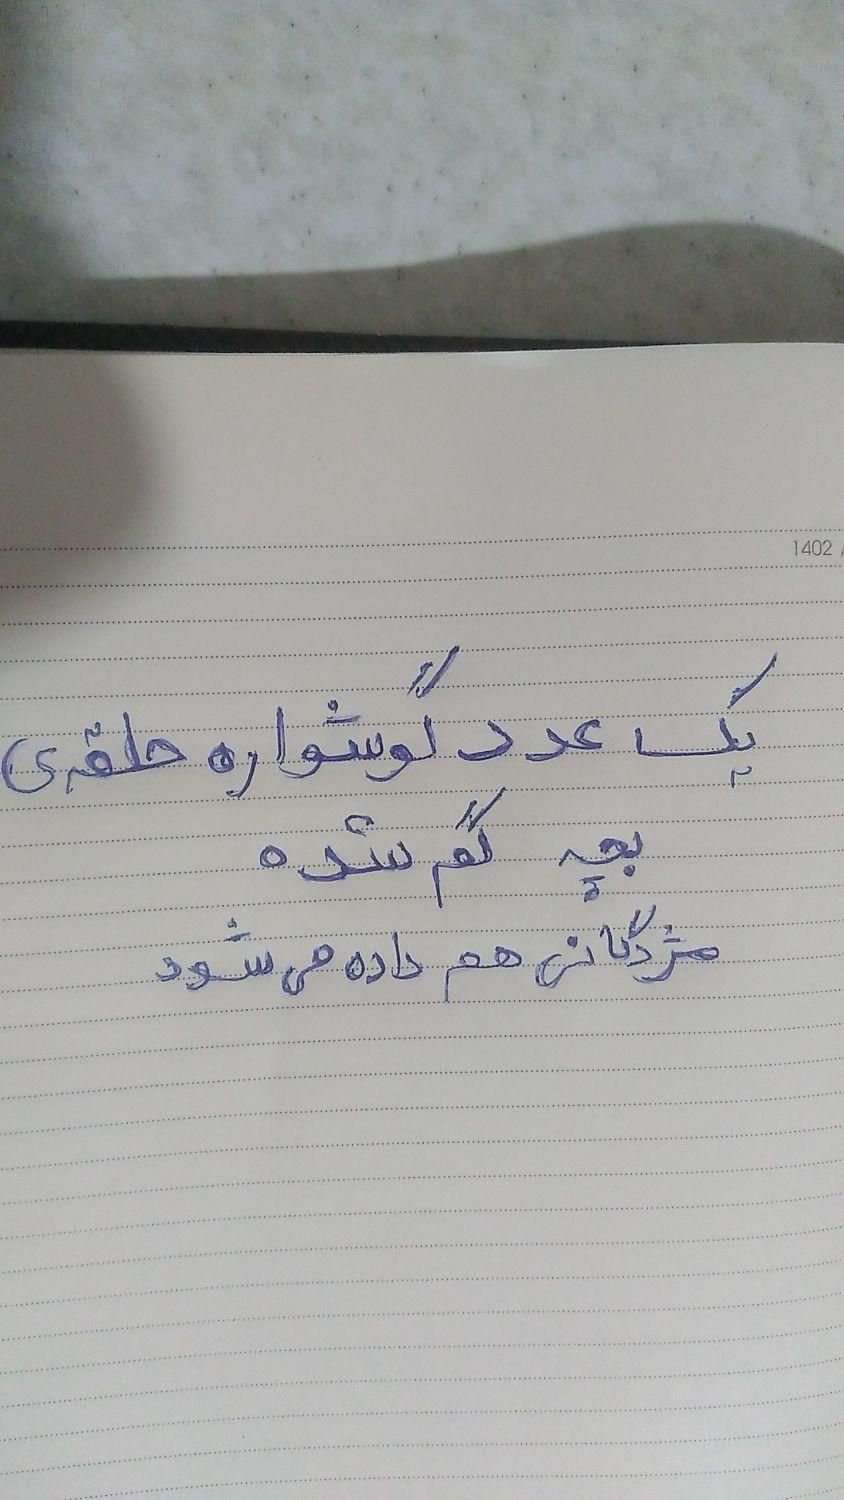 1402 /
یک عدد گوشواره حلقه‌ی
بچه گم شده
مژدگانی هم داده می شود